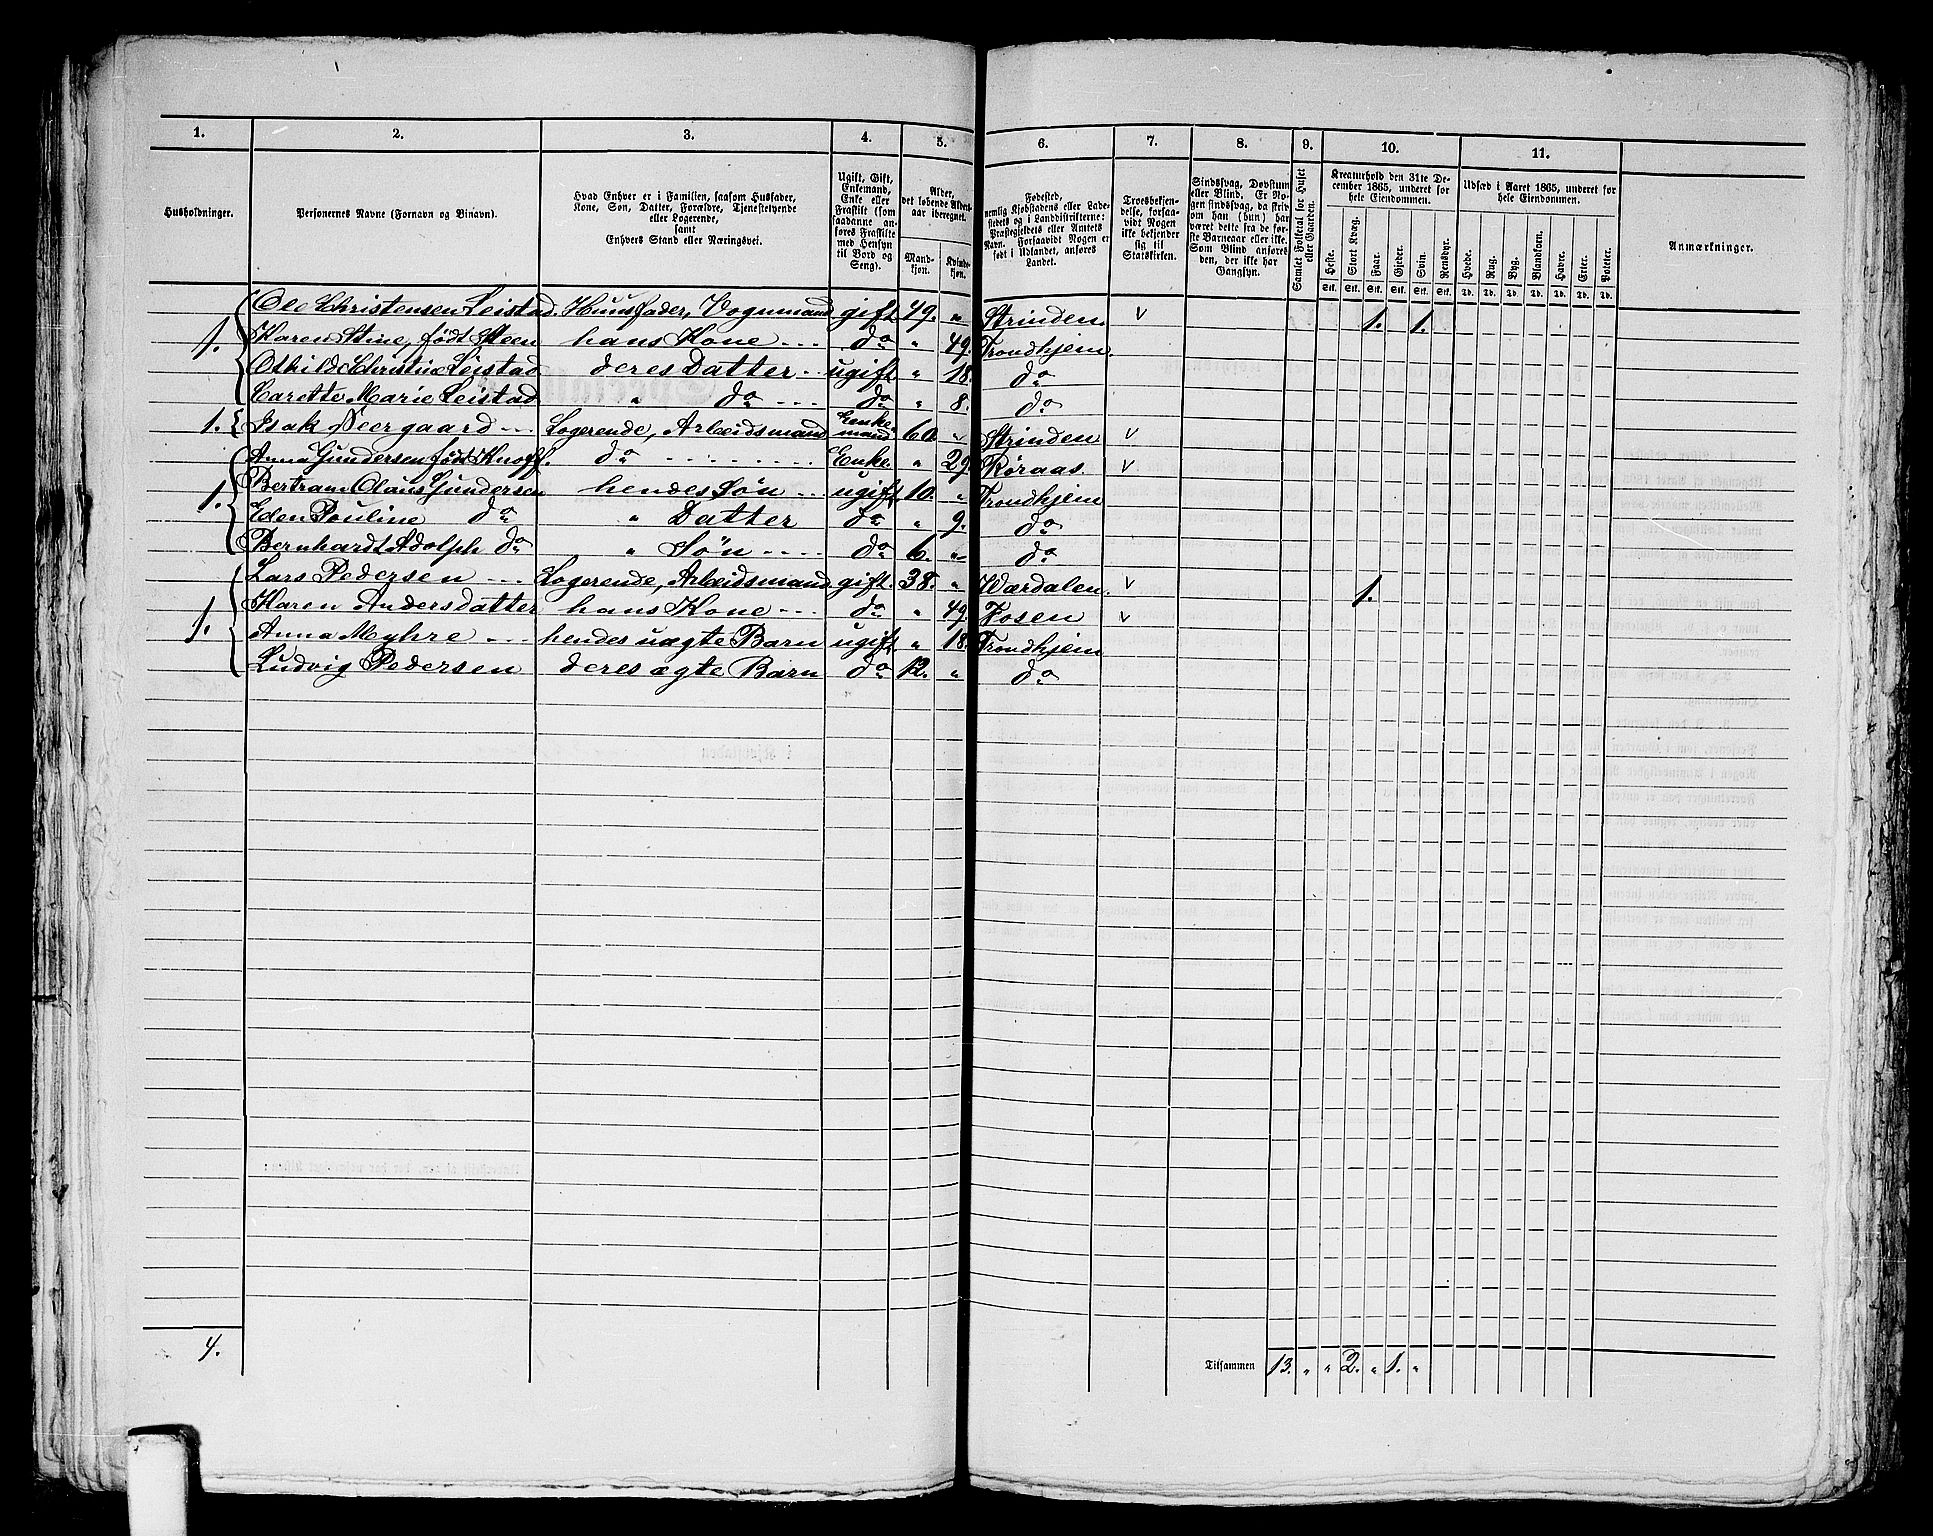 1. 2. 3. 4. 5. 6. 7. 8. 9. 10. 11.
Husholdninger.
Personernes Navne (Fornavn og Binavn).
Hvad Enhver er i Familien, saasom Husfader,
Kone, Søn, Datter, Forældre, Tjenestetyende
eller Logerende,
samt
Enhvers Stand eller Næringsvei.
Ugift, Gift,
Enkemand,
Enke eller
Fraskilt (som
saadanne an-
føres Fraskilte
med Hensyn
til Bord og
Seng).
Alder,
det løbende Alders-
aar iberegnet.
Mand-
kjøn.
Kvinde-
kjøn.
Fødested,
nemlig Kjøbstadens eller Lade-
stedets og i Landdistrikterne:
Præstegjeldets eller Amtets
Navn. Forsaavidt Nogen er
født i Udlandet, anføres
Landet.
Troesbekjen-
delse, forsaa-
vidt Nogen
ikke bekjender
sig til
Statskirken.
Sindssvag, Døvstum
eller Blind. Er No-
gen sindssvag, da skriv
om han (hun) har
været dette fra de før-
ste Barneaar eller ikke.
Som Blind anføres
den, der ikke har
Gangsyn.
Samlet Folketal for Huset
eller Gaarden.
Kreaturhold den 31te De-
cember 1865, underet for
hele Eiendommen.
Heste. Stort Kvæg. Faar. Gjeder. Svin. Rensdyr.
Stk. Stk. Stk. Stk. Stk. Stk.
Udsæd i Aaret 1865, underet for
hele Eiendommen.
Hvede. Rug. Byg. Blandkorn. Havre. Erter. Poteter.
Td. Td. Td. Td. Td. Td. Td.
Anmærkninger.
Ole Christensen Leistad. Huusfader, Vognmand gift 49. " Strinden. v 1. 1.
1. Karen Stine, født Steen hans Kone --- do " 49. Trondhjem.
Othilde Christine Leistad deres Datter -- ugift " 18. do
Carette Marie Leistad " do --- do " 8. do
1. Isak Neergaard --- Logerende, Arbeidsmand Enke-
mand 60. " Strinden v
Anna Gundersen født Knoff. do -------- Enke " 29. Røraas. v
1. Bertram Olaus Gundersen hendes Søn --- ugift 10. " Trondhjem
Eden Pouline do " Datter do " 9. do
Bernhardt Adolph do " Søn ---- do 6. " do
Lars Pedersen --- Logerende, Arbeidsmand gift. 38. " Værdalen. v 1.
1. Karen Andersdatter hans Kone --- do " 49. Fosen v
Anna Myhre --- hendes uægte Barn ugift " 18. Trondhjem
Ludvig Pedersen deres ægte Barn do 12. " do
4.
Tilsammen 13. " " 2. " 1. "